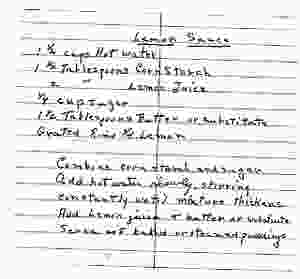 Lemon Sauce
1 1/2 cups Hot water
1 1/2 Tablespoons Corn Starch
2 " Lemon Juice
1/2 cup sugar
1 1/2 Tablespoons Butter or substitute
Grated Rind 1/2 Lemon
Combine corn starch and sugar
Add hot water slowly, stirring
constantly until mixture thickens
Add Lemon juice + butter or substitute
Serve hot baked or steamed puddings